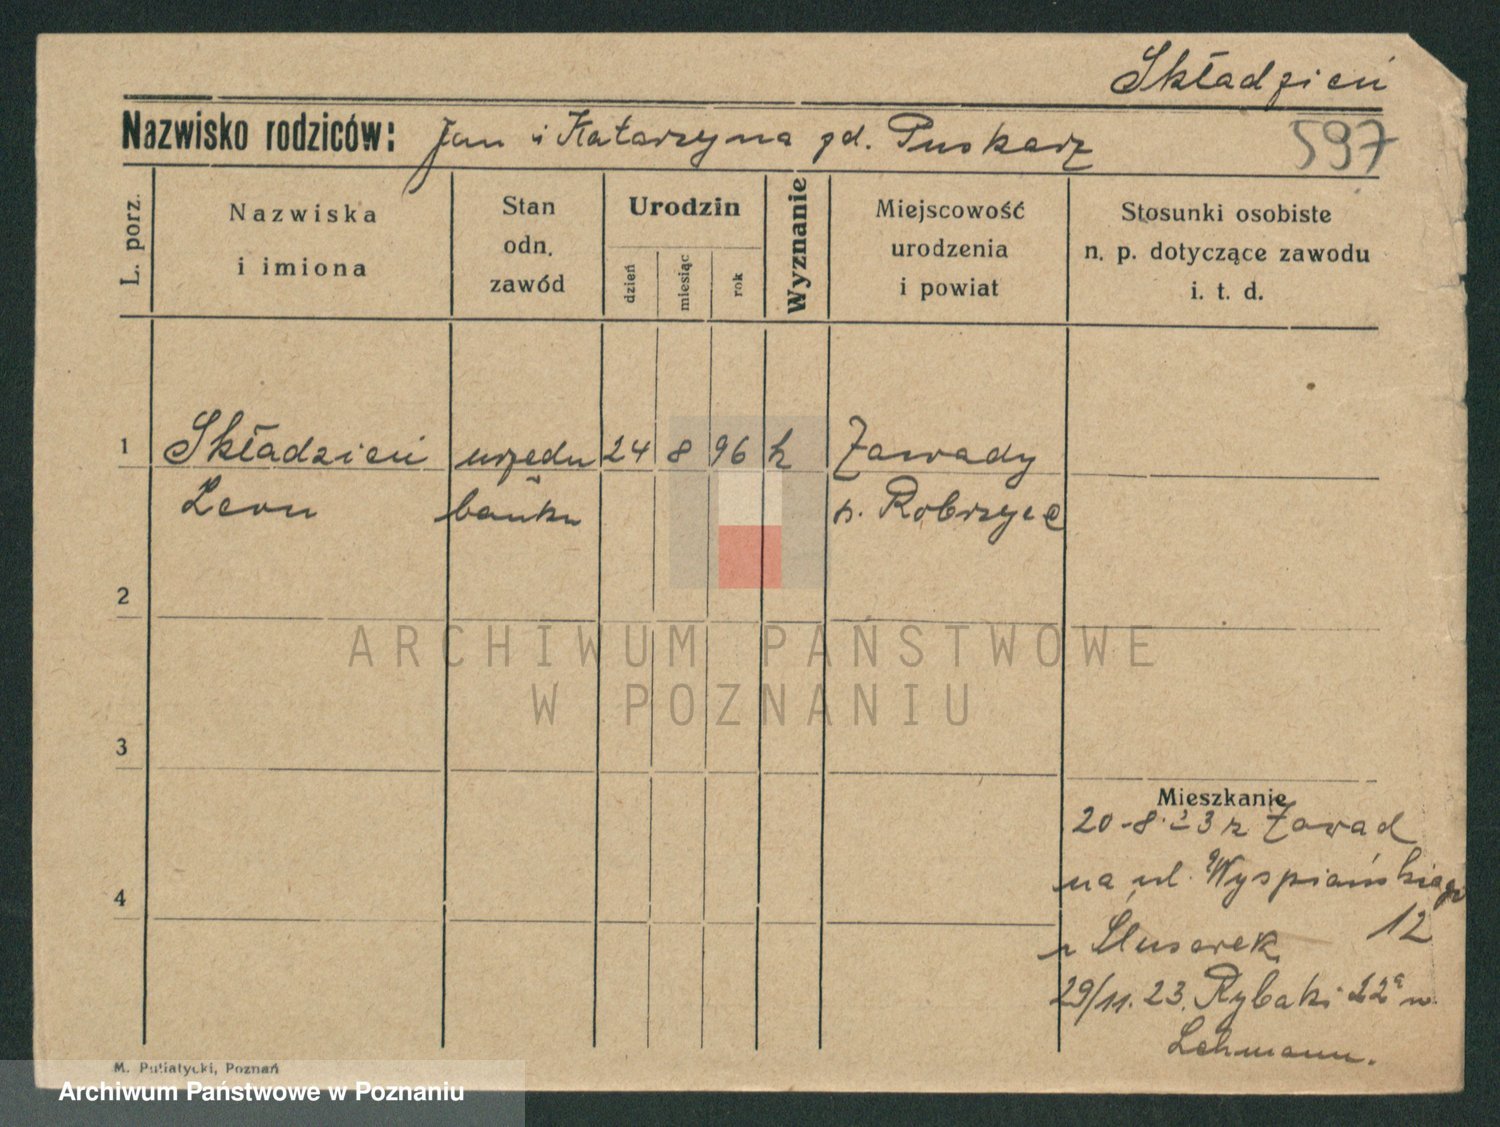 Składzień
Nazwisko rodziców: Jan i Katarzyna zd. Puskarz
597
L. porz.
Nazwiska
i imiona
Stan
odn.
zawód
Urodzin
dzień
miesiąc
rok
Wyznanie
Miejscowość
urodzenia
i powiat
Stosunki osobiste
n. p. dotyczące zawodu
i. t. d.
1 Składzień urzędn 24 8 96 k Zawady
Leon banku p. Robrzyce
2
3
4
ARCHIWUM PAŃSTWOWE
W POZNANIU
Mieszkanie
20-8.23 z Zawad
na ul. Wyspiańskiego
12
Slusarek
29/11.23. Rybaki 22a w.
Lehmann.
M. Putiatycki, Poznań
Archiwum Państwowe w Poznaniu